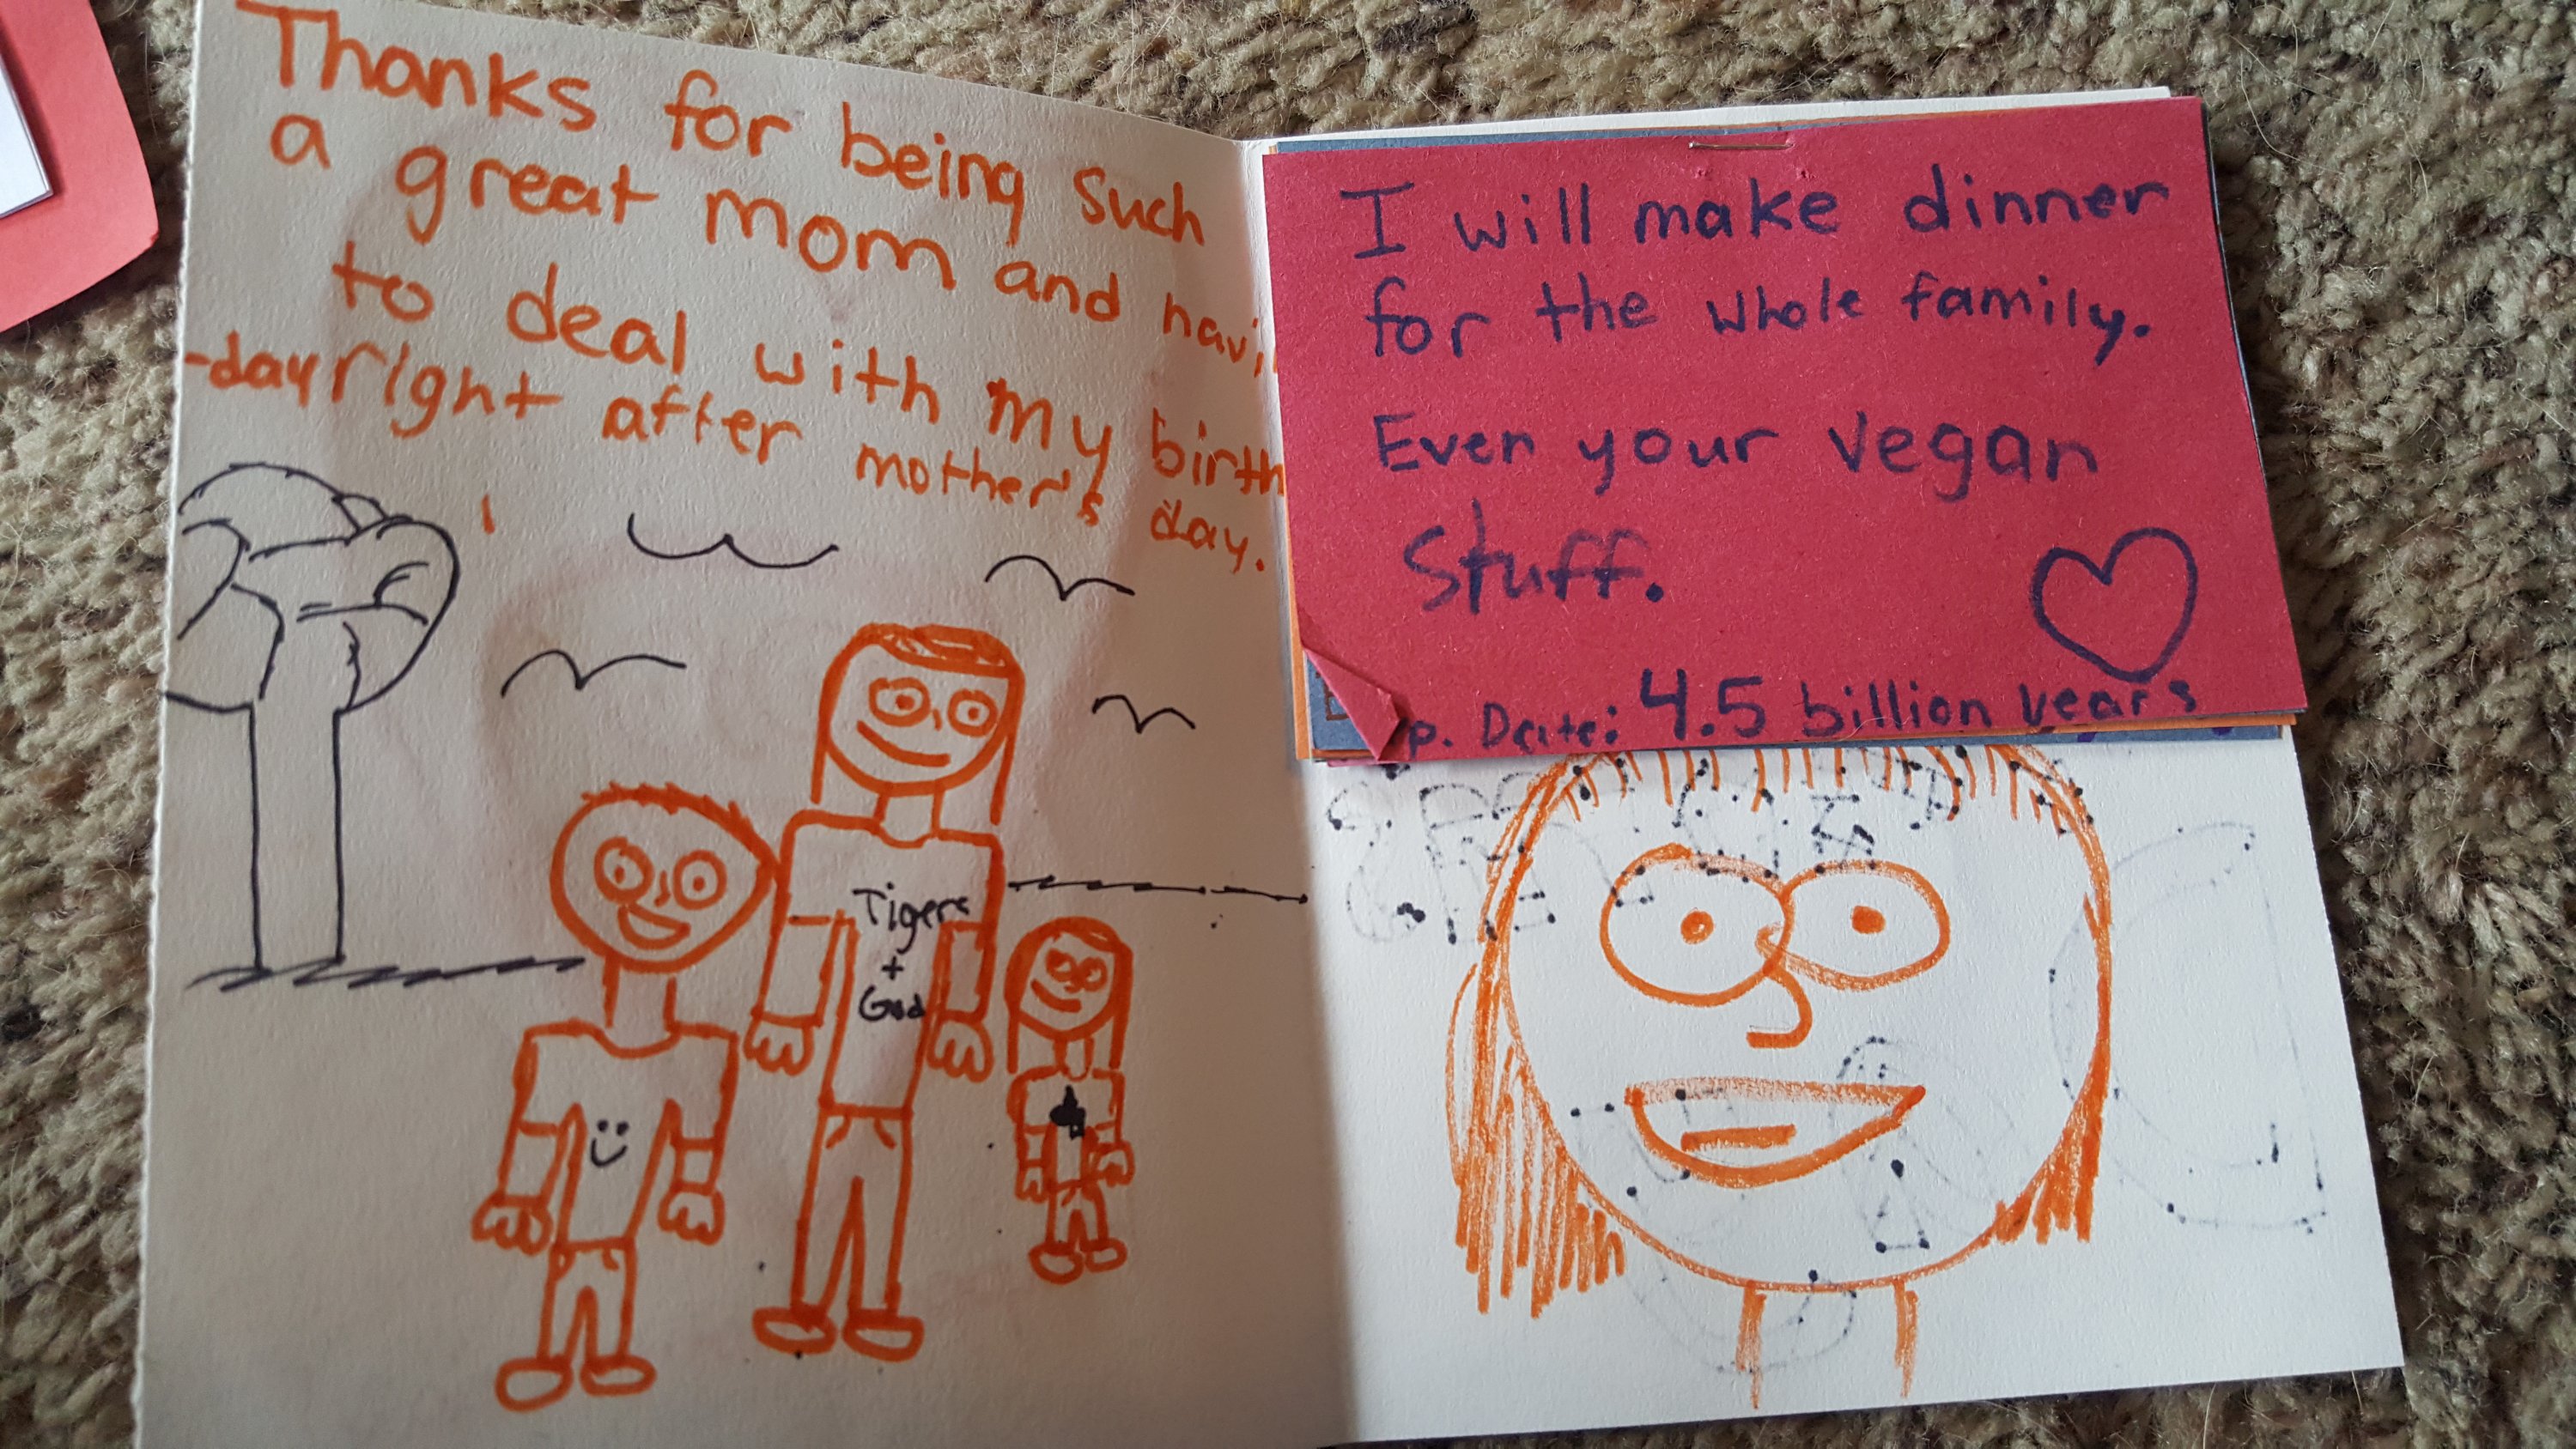 Thanks for being such
a great mom and havi
to deal with my birth
-day right after mother's day.
Tigers
+
God
I will make dinner
for the whole family.
Even your vegan
stuff.
p. Date: 4.5 billion years